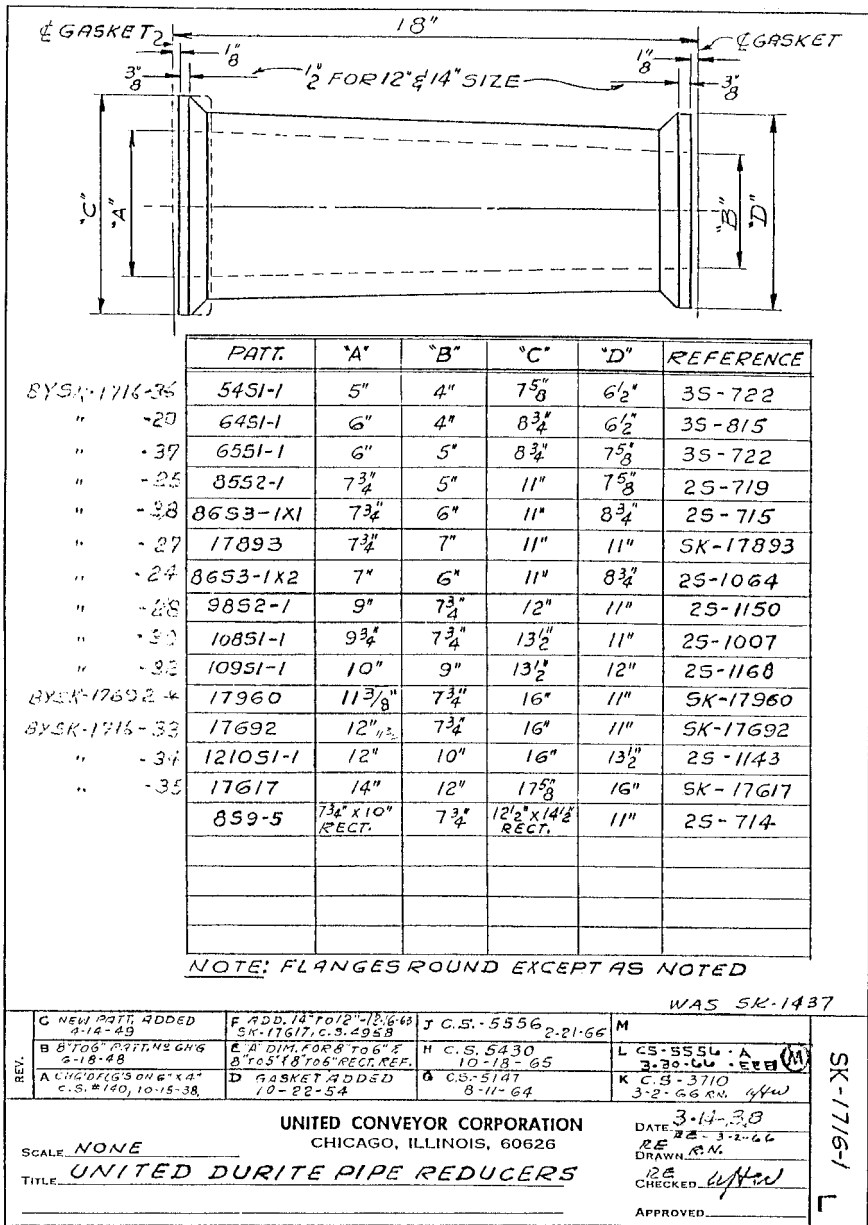 18"
℄ GASKET 2 1/8" 1/8" ℄ GASKET
3/8 1/2" FOR 12" & 14" SIZE 3/8"
"C" "A" "B" "D"
PATT. "A" "B" "C" "D" REFERENCE
BYSK-1716-36 54S1-1 5" 4" 7 5/8" 6 1/2" 3S-722
" -20 64S1-1 6" 4" 8 3/4" 6 1/2" 3S-815
" -37 65S1-1 6" 5" 8 3/4" 7 5/8" 3S-722
" -25 85S2-1 7 3/4" 5" 11" 7 5/8" 2S-719
" -38 86S3-1X1 7 3/4" 6" 11" 8 3/4" 2S-715
" -27 17893 7 3/4" 7" 11" 11" SK-17893
" -24 86S3-1X2 7" 6" 11" 8 3/4" 2S-1064
" -28 98S2-1 9" 7 3/4" 12" 11" 2S-1150
" 108S1-1 9 3/4" 7 3/4" 13 1/2" 11" 2S-1007
" 109S1-1 10" 9" 13 1/2" 12" 2S-1168
BYSK-17692-4 17960 11 3/8" 7 3/4" 16" 11" SK-17960
BYSK-1716-33 17692 12" 7 3/4" 16" 11" SK-17692
" -34 1210S1-1 12" 10" 16" 13 1/2" 2S-1143
" -35 17617 14" 12" 17 5/8" 16" SK-17617
8S9-5 7 3/4" X 10" RECT. 7 3/4" 12 1/2" X 14 1/2" RECT. 11" 2S-714
NOTE: FLANGES ROUND EXCEPT AS NOTED
WAS SK-1437
REV.
C NEW PATT. ADDED 4-14-49
B 8" TO 6" PATT. Nº CHG 6-18-48
A CHG'D FLG'S ON 6" X 4" C.S. #140, 10-15-38
F ADD. 14" TO 12" -12-16-63 SK-17617, C.S. 4958
E "A" DIM. FOR 8" TO 6" & 8" TO 5" & 8" TO 6" RECT. REF.
D GASKET ADDED 10-22-54
J C.S.-5556 2-21-66
H C.S. 5430 10-18-65
G C.S.-5147 8-11-64
M
L CS-5556-A 3-30-66 M
K C.S-3710 3-2-66 RN.
SK-1716-1 L
UNITED CONVEYOR CORPORATION
CHICAGO, ILLINOIS, 60626
SCALE NONE
TITLE UNITED DURITE PIPE REDUCERS
DATE 3-14-38
RE RE-3-2-66
DRAWN R.N.
CHECKED RE
APPROVED